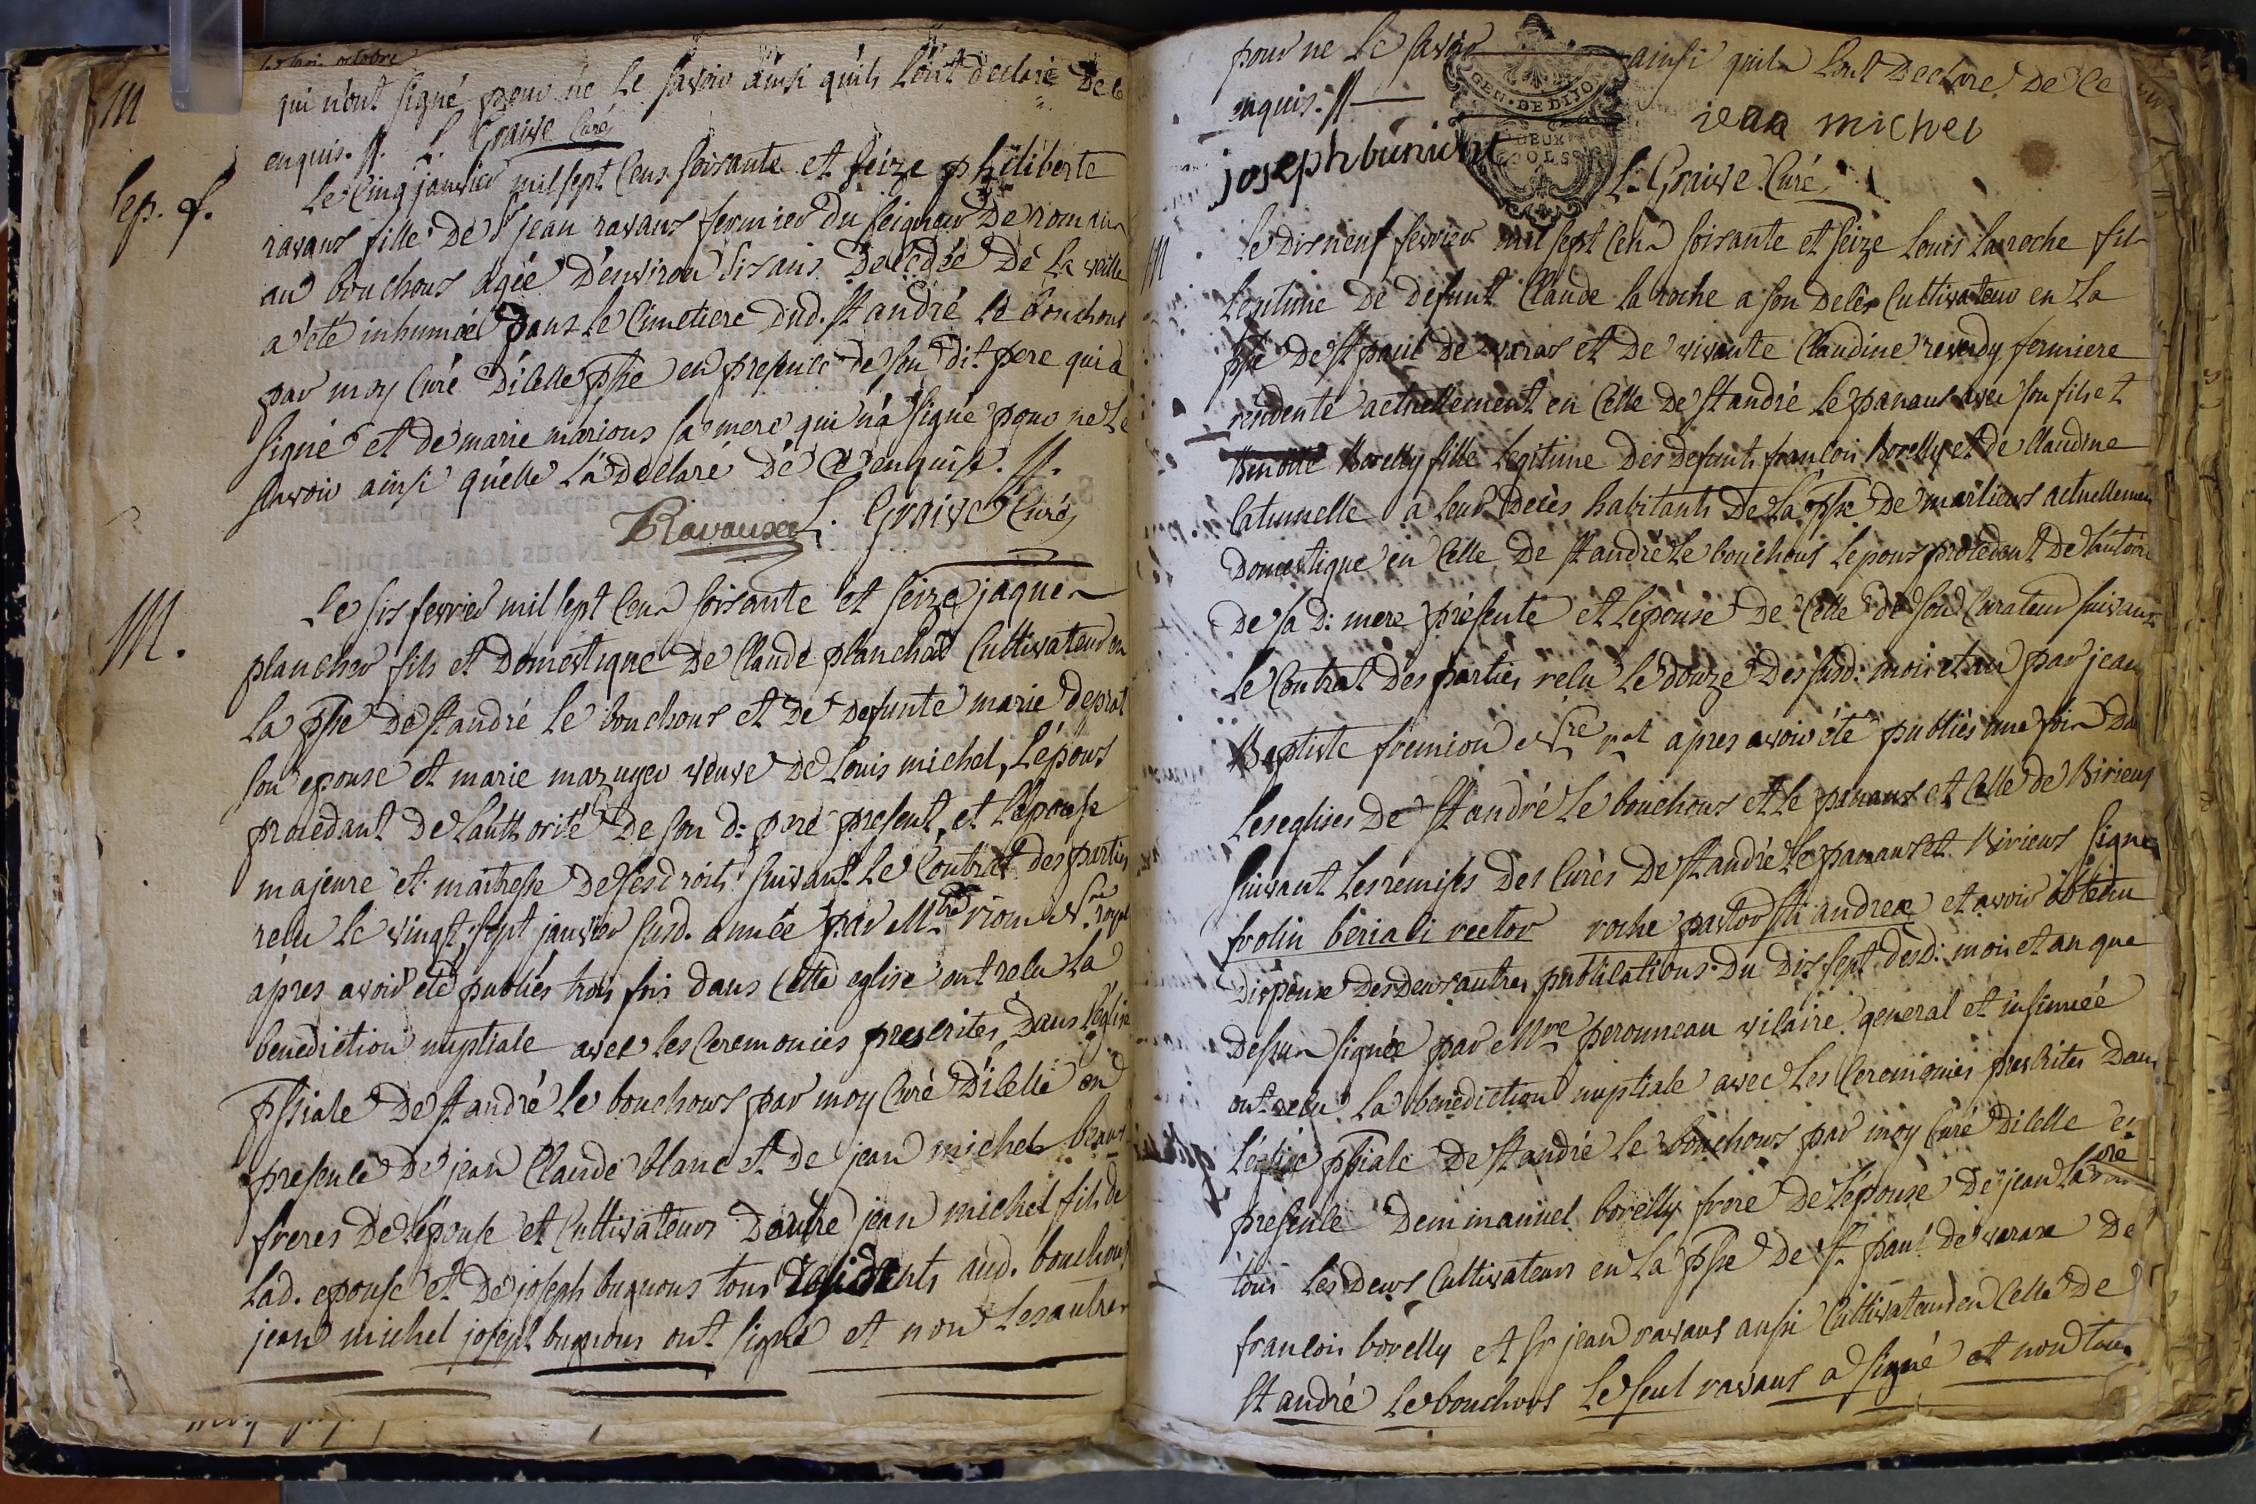 qui n'ont signé pour ne le savoir ainsi qu'ils l'ont declaré de ce
enquis. //. L. Graive Curé
M
Sep. f.
Le Cinq janvier mil sept Cens soisante et seize philiberte
ravaus fille de Sr jean ravaus fermier du seigneur De romans
au bouchous agée d'environ sis ans Decedée De la veille
a été inhumée Dans le Cimetiere dud. st andré le bouchous
par moy Curé d'icelle psse en presence de son dit pere qui a
signé et de marie marious sa mere qui n'a signé pour ne le
savoir ainsi qu'elle l'a declaré de ce enquise. //.
Ravaux L. Graive Curé
M.
Le sis fevrier mil sept Cens soisante et seize jaques
plancher fils et domestique de Claude planchet Cultivateur en
la psse de st andré le bouchous et de defunte marie deprat
son epouse et marie mazuyer veuve de Louis michel, l'épous
procedant de l'authorité de son d: pere present, et l'épouse
majeure et maitresse de ses droits suivant le Contrat des parties
recu le vingt sept janvier susd. année par Mtre riom nre royal
apres avoir été publiés trois fois dans Cette eglise ont recu la
benediction nuptiale avec les Ceremonies prescrites Dans l'église
pssiale De st andré le bouchous par moy Curé D'icelle en
presence de jean Claude blanc et de jean michel beaus
freres de l'epouse et Cultivateurs D'autre jean michel fils de
lad. epouse et de joseph bugnous tous residents aud. bouchous
jean michel joseph bugnous ont signé et non les autres
pour ne le savoir ainsi quils l'ont declaré de ce
enquis. //
GEN. DE DIJO
jean michel
joseph buniont
L. Graive Curé
M
Le dis neuf fevrier mil sept Cens soisante et seize Louis laroche fils
legitime de defunt Claude la roche a son deces Cultivateur en la
psse de st paul de varas et de vivante Claudine reverdy fermiere
residente actuellement en Celle de st andré le panaus avec son fils et
Benoite Borelly fille legitime des defunts francois Borelly et de Claudine
Catumelle a leur deces habitants de la psse de marlieus actuellement
Domestique en Celle de st andré le bouchous l'epous procedant de l'autorité
de sa d: mere présente et l'epouse de Celle de son Curateur suivant
le Contrat des parties recu le douze des susd: mois et an par jean
Baptiste fremion nre ral apres avoir été publiés une fois dans
les eglises de st andré le bouchous et le panaus et Celle de Birieus
suivant les remises des Curés de st andré le panaus et Birieus signé
frolin beriaci rector roche pastor sti andreæ et avoir obtenu
dispense des deus autres publications du dis sept desd: mois et an que
dessus signée par Mre perouneau vicaire general et insinuée
ont recu la benediction nuptiale avec les Ceremonies prescrites dans
l'église pssiale de st andré le bouchous par moy Curé d'icelle en
presence d'emmanuel borelly frere de l'epouse de jean la
tous les deus Cultivateurs en la psse de st paul de varax de
francois borelly et sr jean ravaus aussi Cultivateur en Celle de
st andré le bouchous le seul ravaus a signé et non tous